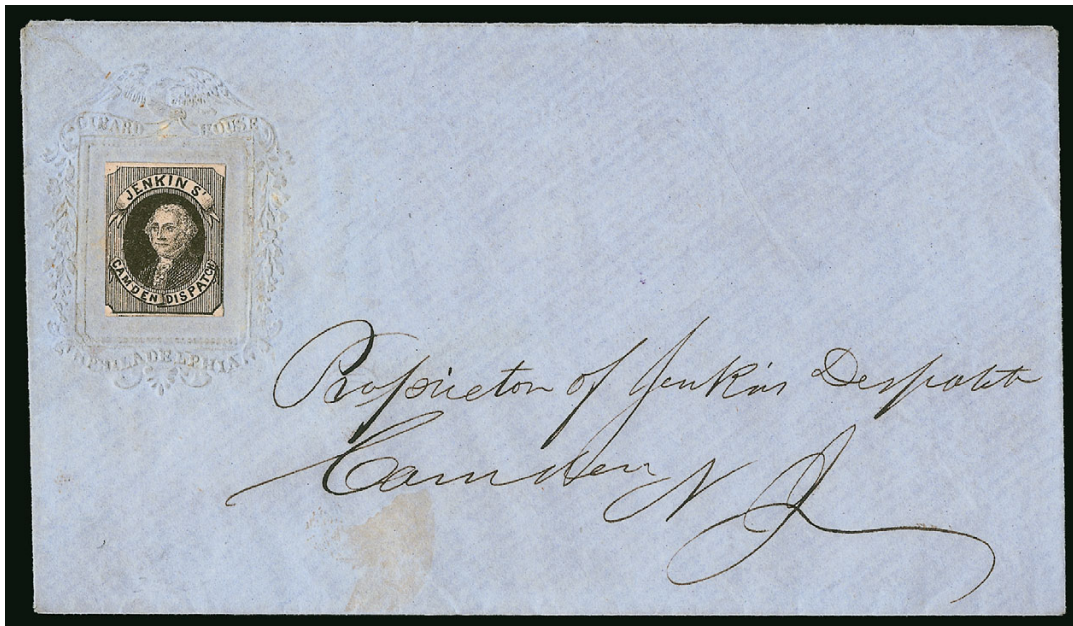 GIRARD HOUSE
JENKINS'
CAMDEN DISPATCH
PHILADELPHIA
Proprietor of Jenkins Despatch
Camden N J